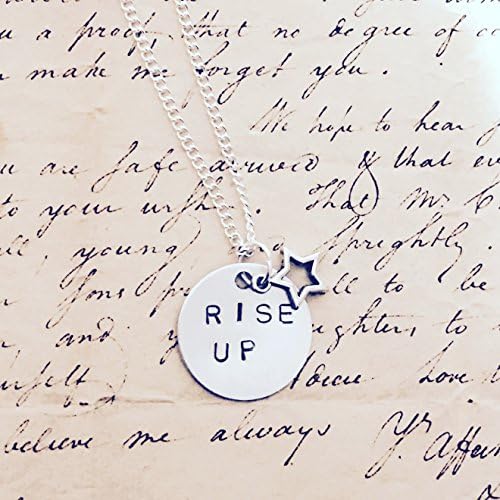 u a proof, that no degree of
n make me forget you.
We hope to hear
you are safe arrived & that
to your wish. That Mr. C
all, young sprightly.
sons to be
and you daughters, to
urself. love
believe me always
Yr. Affec
RISE
UP